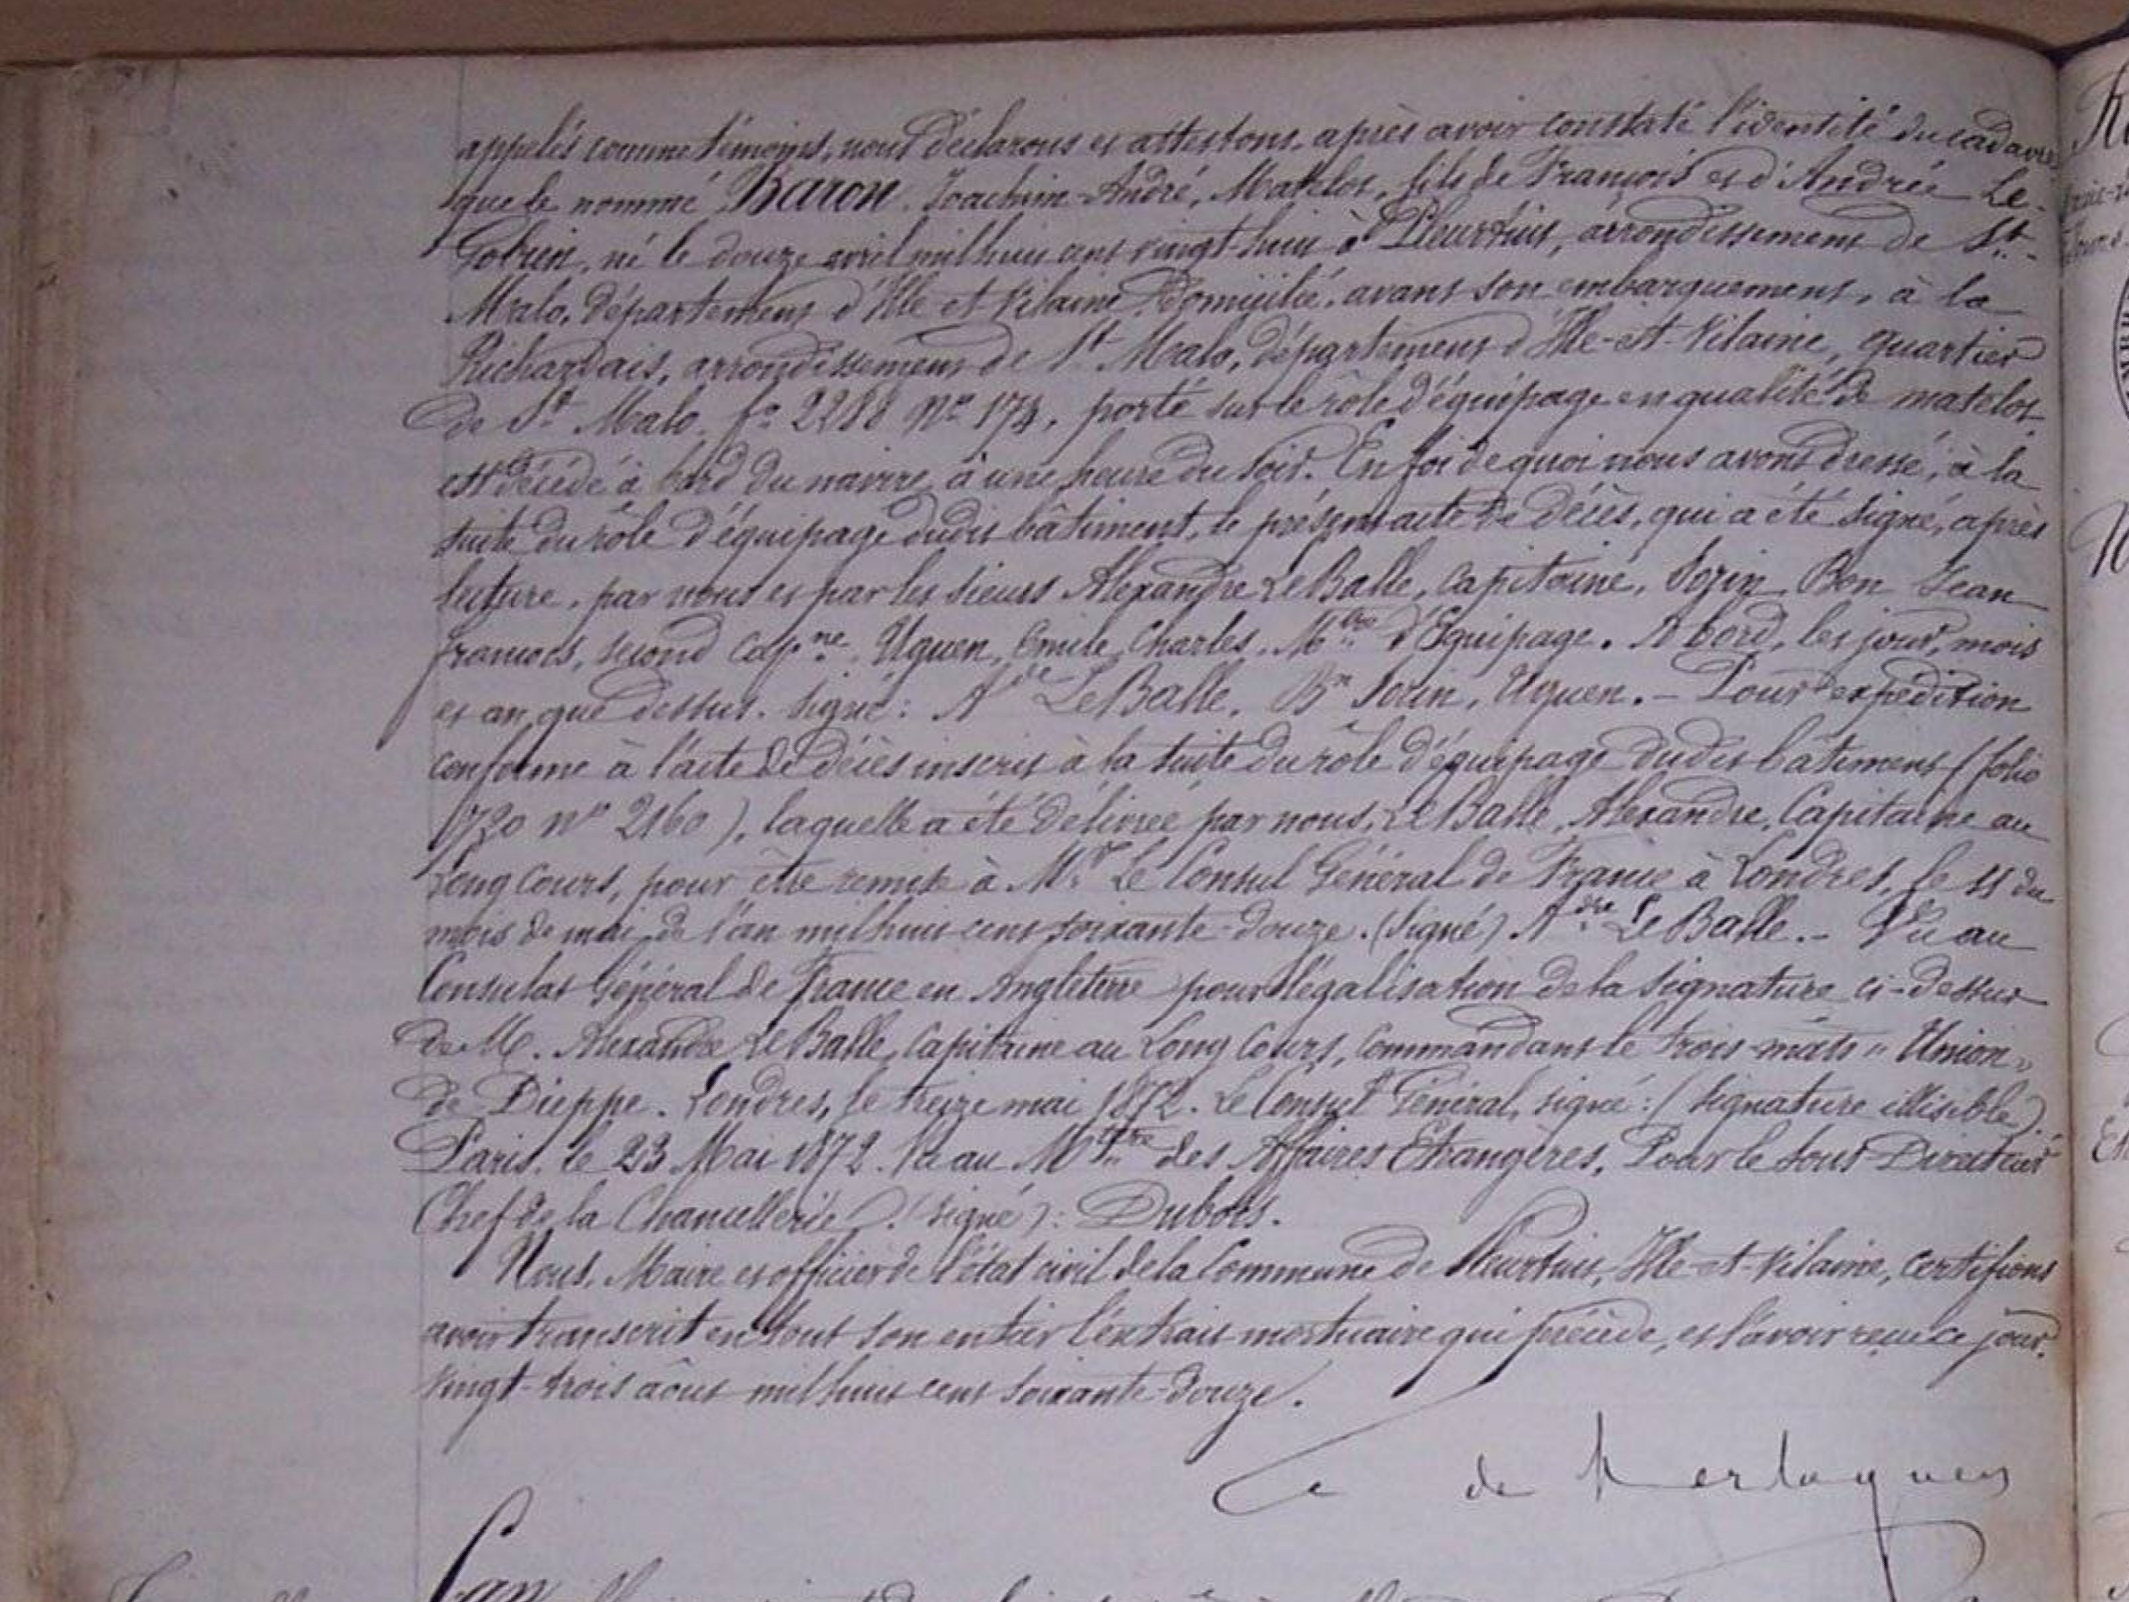 appelés comme témoins, nous déclarons et attestons, après avoir constaté l'identité du cadavre
que le nommé Baron, Joachim-André, Matelot, fils de François et d'Andrée Le-
Gobien, né le douze avril mil huit cent vingt-huit à Pleurtuit, arrondissement de St.-
Malo, Département d'Ille et Vilaine. Domicilié, avant son embarquement, à la
Richardais, arrondissement de St Malo, département d'Ille-et-Vilaine, quartier
de St Malo, fo 2288 No 174, porté sur le rôle d'équipage en qualité de matelot
est décédé à bord du navire, à une heure du soir. En foi de quoi nous avons dressé, à la
suite du rôle d'équipage dudit bâtiment, le présent acte de décès, qui a été signé, après
lecture, par nous et par les sieurs Alexandre Le Balle, Capitaine, Sozin, Bon Jean
François, second Capne, Uguen, Emile, Charles, Mtre d'Equipage. A bord, les jour, mois
et an que dessus. Signé: Adre Le Balle, Bn Sozin, Uguen. – Pour expédition
conforme à l'acte de décès inscrit à la suite du rôle d'équipage dudit bâtiment (folio
1720 no 2160), laquelle a été délivrée par nous, Le Balle, Alexandre, Capitaine au
Long Cours, pour être remise à Mr Le Consul Général de France à Londres, le 11 du
mois de mai de l'an mil huit cent soixante-douze. (Signé) Adre Le Balle. – Vu au
Consulat Général de France en Angleterre pour légalisation de la signature ci-dessus
de M. Alexandre Le Balle, Capitaine au Long Cours, Commandant le trois-mâts "Union"
de Dieppe. Londres, le treize mai 1872. Le Consul Général, signé: (signature illisible).
Paris, le 23 Mai 1872. Vu au Mtère des Affaires Etrangères, Pour le Sous Directeur
Chef de la Chancellerie. (Signé): Dubois.
Nous, Maire et officier de l'état civil de la Commune de Pleurtuit, Ille-et-Vilaine, certifions
avoir transcrit en tout son entier l'extrait mortuaire qui précède, et l'avoir reçu ce jour,
vingt-trois août mil huit cent soixante-douze.
de Kerlaguen
L'an